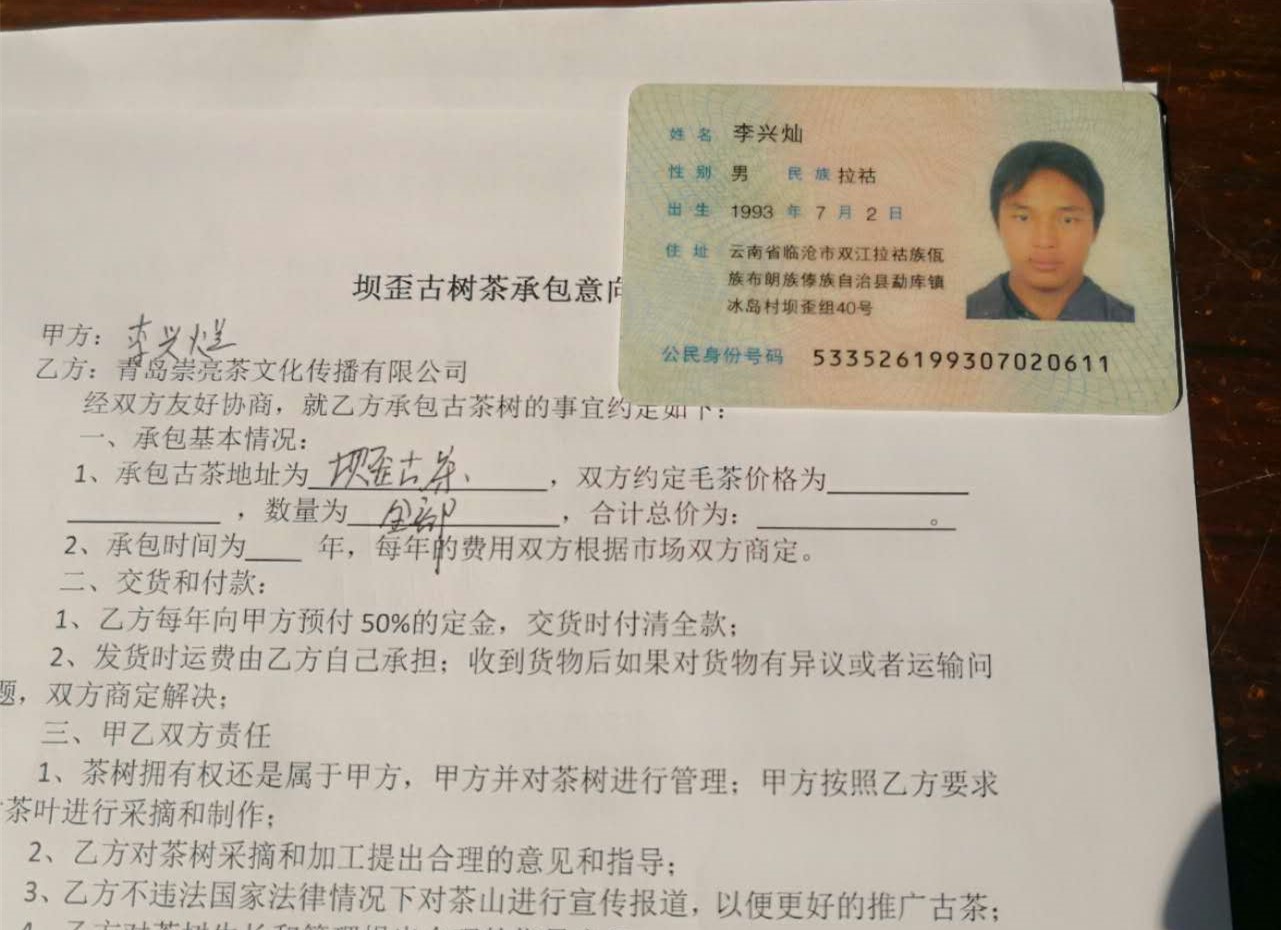 姓名 李兴灿
性别 男 民族 拉祜
出生 1993 年 7 月 2 日
住址 云南省临沧市双江拉祜族佤
族布朗族傣族自治县勐库镇
冰岛村坝歪组40号
公民身份号码 533526199307020611
坝歪古树茶承包意向
甲方：李兴灿
乙方：青岛崇亮茶文化传播有限公司
经双方友好协商，就乙方承包古茶树的事宜约定如下：
一、承包基本情况：
1、承包古茶地址为 坝歪古茶、，双方约定毛茶价格为
，数量为 全部 ，合计总价为： 。
2、承包时间为 年，每年的费用双方根据市场双方商定。
二、交货和付款：
1、乙方每年向甲方预付 50%的定金，交货时付清全款；
2、发货时运费由乙方自己承担；收到货物后如果对货物有异议或者运输问
题，双方商定解决；
三、甲乙双方责任
1、茶树拥有权还是属于甲方，甲方并对茶树进行管理；甲方按照乙方要求
茶叶进行采摘和制作；
2、乙方对茶树采摘和加工提出合理的意见和指导；
3、乙方不违法国家法律情况下对茶山进行宣传报道，以便更好的推广古茶；